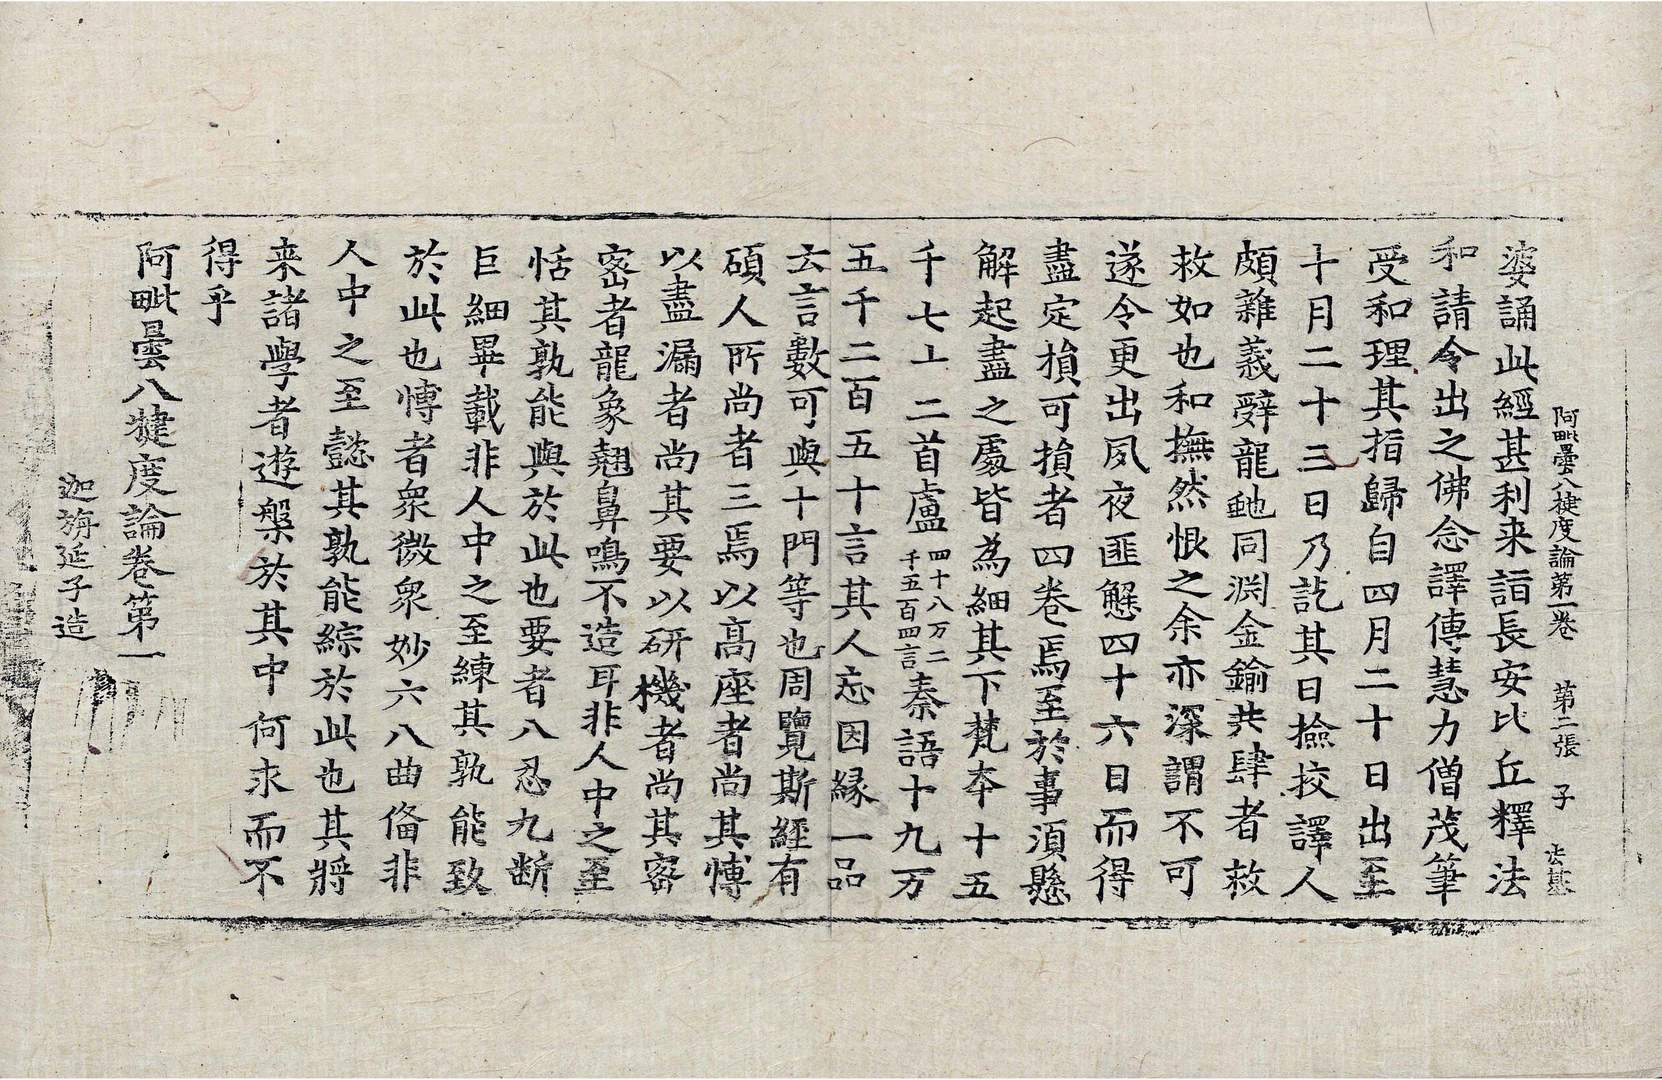 阿毗曇八揵度論第一卷　第二張　子　法基
婆誦此經甚利来詣長安比丘釋法
和請令出之佛念譯傳慧力僧茂筆
受和理其指歸自四月二十日出至
十月二十三日乃訖其日撿挍譯人
頗雜義辭龍虵同渊金鍮共肆者敕
敕如也和撫然恨之余亦深謂不可
遂令更出夙夜匪懈四十六日而得
盡定損可損者四卷焉至於事須懸
解起盡之處皆為細其下梵夲十五
千七上二首盧四十八万二千五百四言秦語十九万
五千二百五十言其人忘因縁一品
云言數可與十門等也周覽斯經有
碩人所尚者三焉以高座者尚其愽
以盡漏者尚其要以研機者尚其密
密者龍象翹鼻鳴不造耳非人中之至
恬其孰能與於此也要者八忍九断
巨細畢載非人中之至練其孰能致
於此也愽者衆微衆妙六八曲俻非
人中之至懿其孰能綜於此也其將
来諸學者遊槃於其中何求而不
得乎
阿毗曇八犍度論卷第一
迦旃延子造